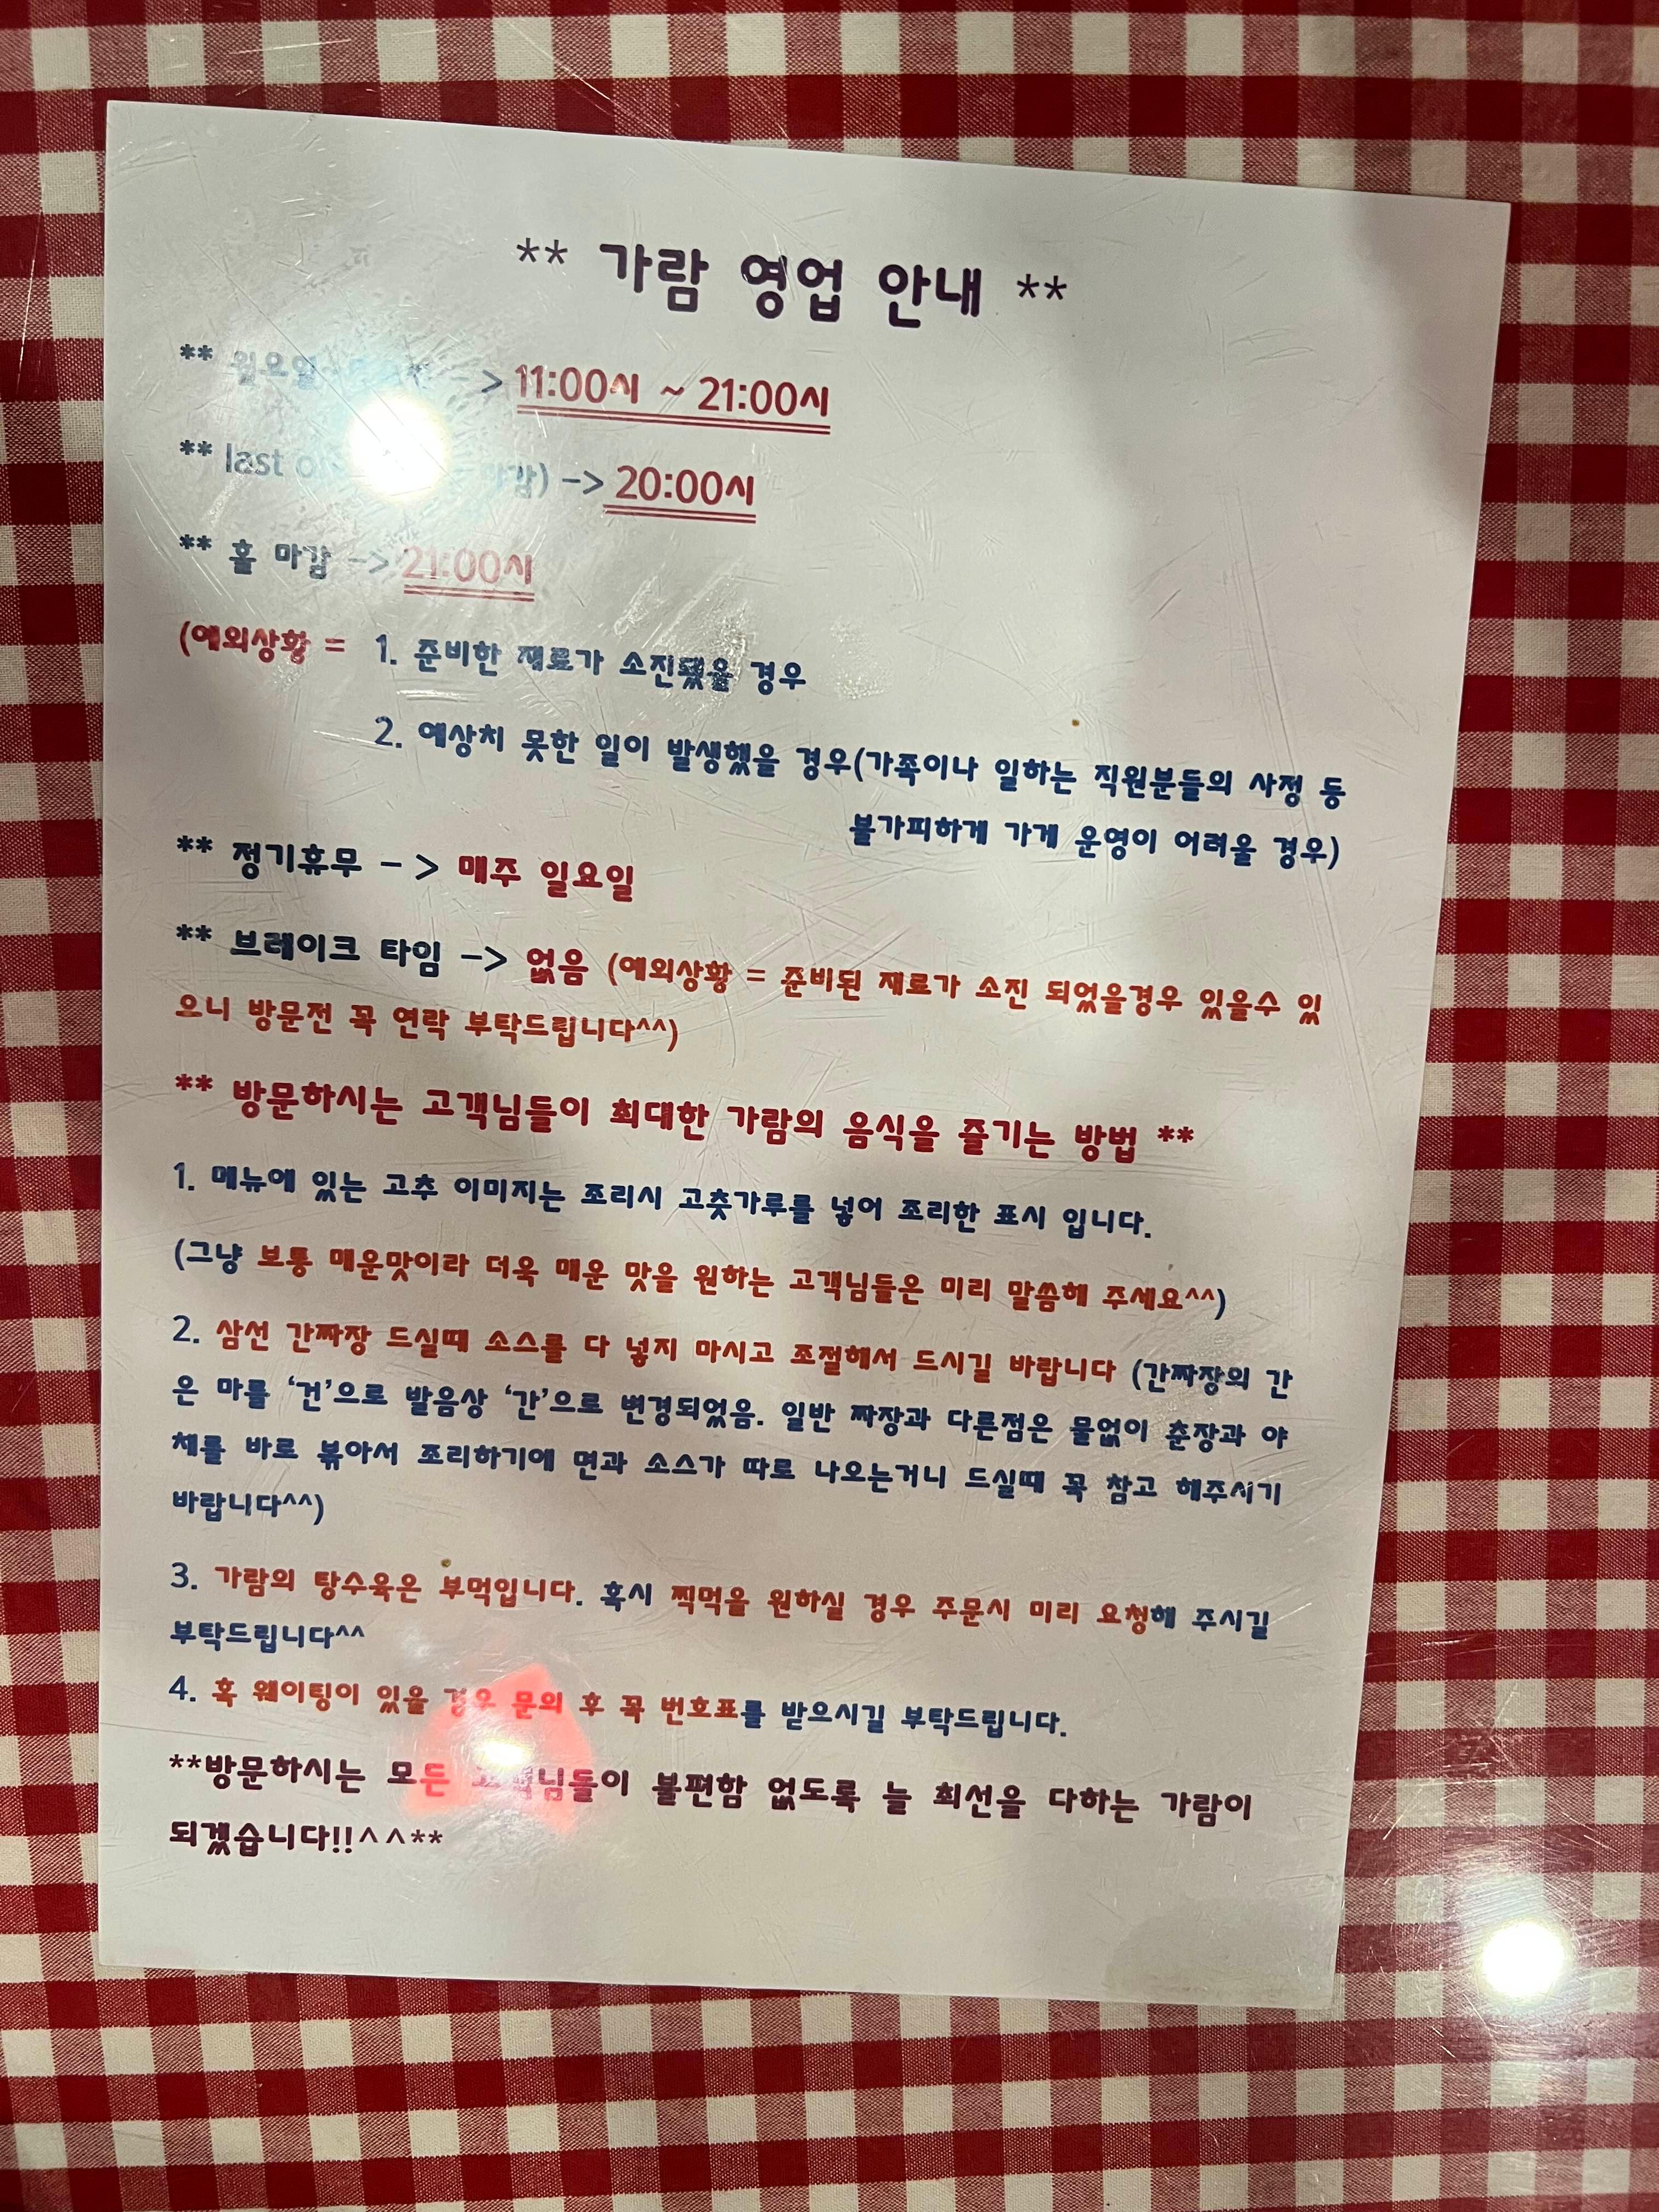 ** 가람 영업 안내 **
** 월요일 -> 11:00시 ~ 21:00시
** last 마감) -> 20:00시
** 홀 마감 -> 21:00시
(예외상황 = 1. 준비한 재료가 소진됐을 경우
2. 예상치 못한 일이 발생했을 경우(가족이나 일하는 직원분들의 사정 등
불가피하게 가게 운영이 어려울 경우)
** 정기휴무 - > 매주 일요일
** 브레이크 타임 -> 없음 (예외상황 = 준비된 재료가 소진 되었을경우 있을수 있
으니 방문전 꼭 연락 부탁드립니다^^)
** 방문하시는 고객님들이 최대한 가람의 음식을 즐기는 방법 **
1. 메뉴에 있는 고추 이미지는 조리시 고춧가루를 넣어 조리한 표시 입니다.
(그냥 보통 매운맛이라 더욱 매운 맛을 원하는 고객님들은 미리 말씀해 주세요^^)
2. 삼선 간짜장 드실때 소스를 다 넣지 마시고 조절해서 드시길 바랍니다 (간짜장의 간
은 마를 ‘건’으로 발음상 ‘간’으로 변경되었음. 일반 짜장과 다른점은 물없이 춘장과 야
채를 바로 볶아서 조리하기에 면과 소스가 따로 나오는거니 드실때 꼭 참고 해주시기
바랍니다^^)
3. 가람의 탕수육은 부먹입니다. 혹시 찍먹을 원하실 경우 주문시 미리 요청해 주시길
부탁드립니다^^
4. 혹 웨이팅이 있을 경우 문의 후 꼭 번호표를 받으시길 부탁드립니다.
**방문하시는 모든 고객님들이 불편함 없도록 늘 최선을 다하는 가람이
되겠습니다!!^^**